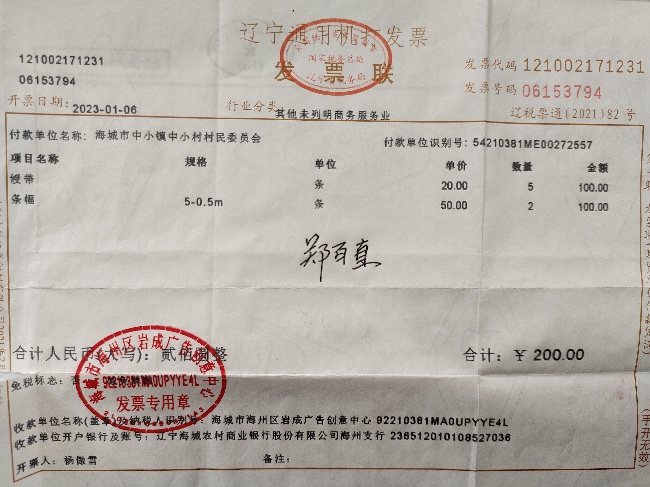 辽宁通用机打发票
国家税务总局
发票联
121002171231
06153794
发票代码 121002171231
发票号码 06153794
开票日期: 2023-01-06
行业分类
其他未列明商务服务业
辽税票通(2021)82号
付款单位名称: 海城市中小镇中小村村民委员会
付款单位识别号: 54210381ME00272557
项目名称 规格 单位 单价 数量 金额
绶带 条 20.00 5 100.00
条幅 5-0.5m 条 50.00 2 100.00
郑百直
合计人民币(大写): 贰佰圆整
合计: ¥ 200.00
海城市海州区岩成广告创意中心
92210381MA0UPYYE4L
发票专用章
免税标志: 否
收款单位名称(盖章)及纳税人识别号: 海城市海州区岩成广告创意中心 92210381MA0UPYYE4L
收款单位开户银行及账号: 辽宁海城农村商业银行股份有限公司海州支行 236512010108527036
开票人: 杨傲雪
备注:
(手开无效)